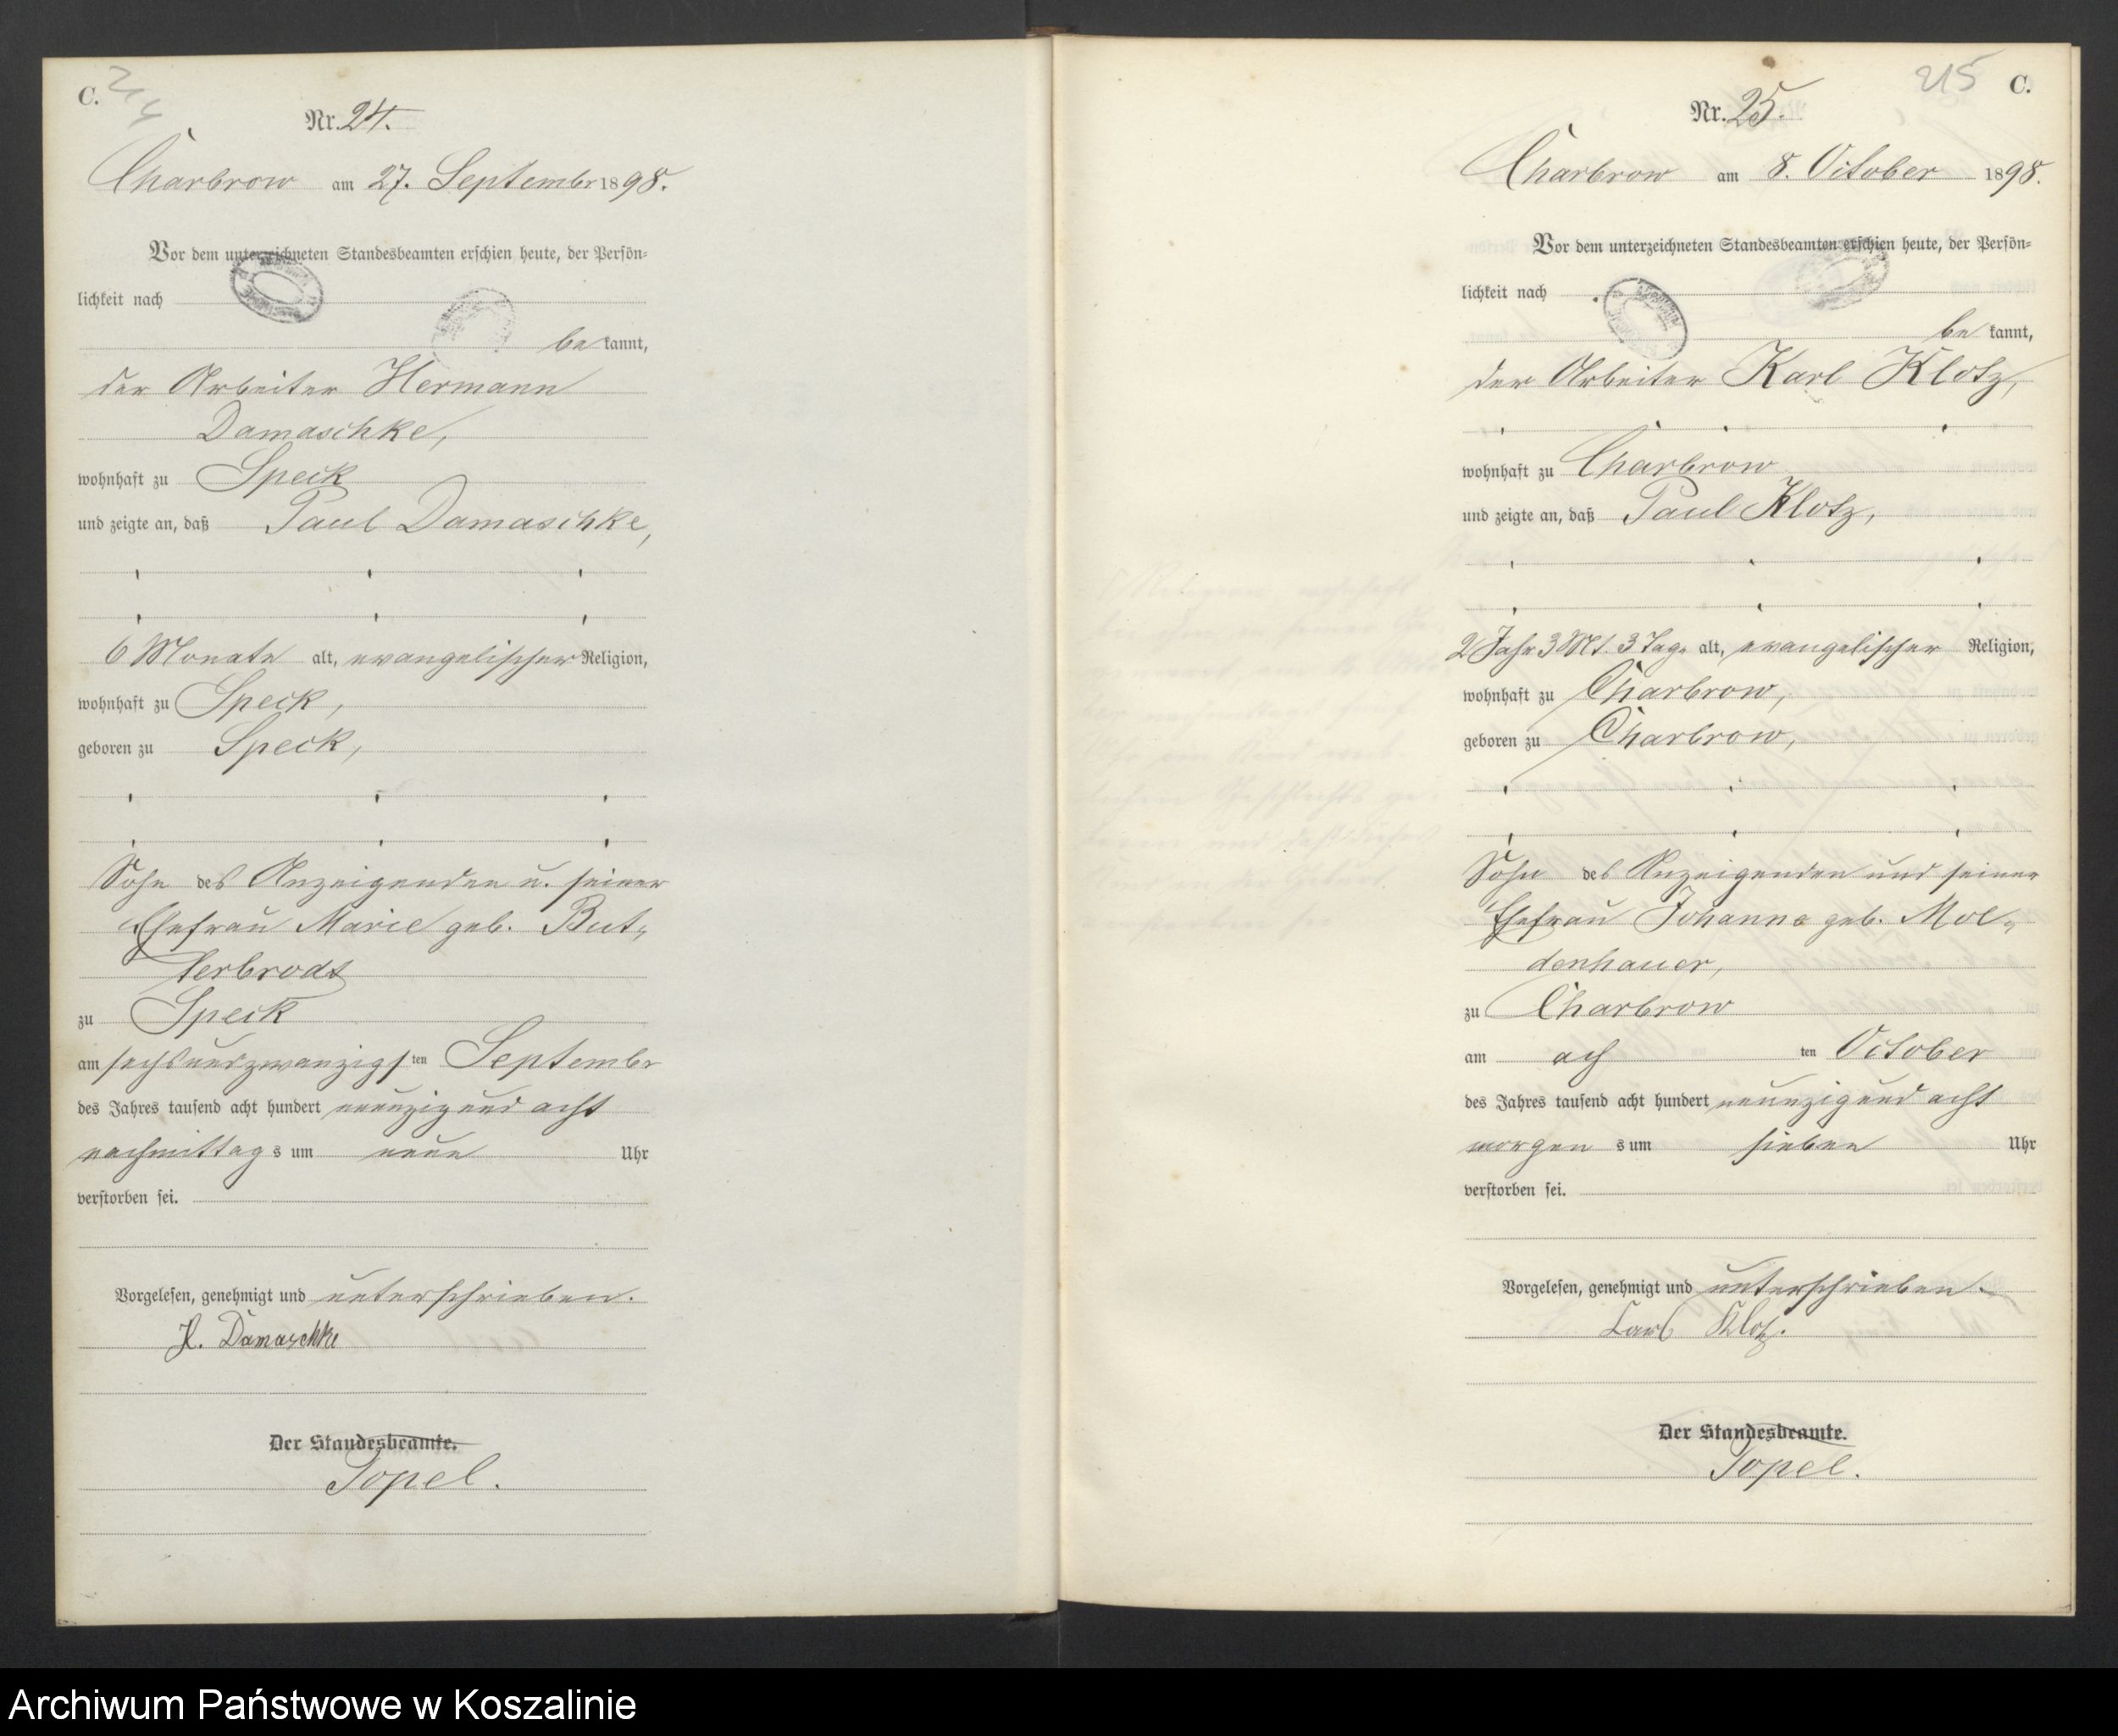 C. 214
Nr. 24.
Charbrow am 27. Septembr 1898.
Vor dem unterzeichneten Standesbeamten erschien heute, der Persön-
lichkeit nach
be kannt,
der Arbeiter Hermann
Damaschke,
wohnhaft zu Speck
und zeigte an, daß Paul Damaschke,
6 Monate alt, evangelischer Religion,
wohnhaft zu Speck,
geboren zu Speck,
Sohn des Anzeigenden u. seiner
Ehefrau Marie geb. But-
terbrodt
zu Speck
am sechsundzwanzigsten Septembr
des Jahres tausend acht hundert neunzig und acht
nachmittags um neun Uhr
verstorben sei.
Vorgelesen, genehmigt und unterschrieben.
H. Damaschke
Der Standesbeamte.
Topel.
215 C.
Nr. 25.
Charbrow am 8. October 1898.
Vor dem unterzeichneten Standesbeamten erschien heute, der Persön-
lichkeit nach
be kannt,
der Arbeiter Karl Klotz,
wohnhaft zu Charbrow
und zeigte an, daß Paul Klotz,
2 Jahr 3 Mt. 3 Tage alt, evangelischer Religion,
wohnhaft zu Charbrow,
geboren zu Charbrow,
Sohn des Anzeigenden und seiner
Ehefrau Johanne geb. Mol-
denhauer,
zu Charbrow
am ach ten October
des Jahres tausend acht hundert neunzig und acht
morgens um sieben Uhr
verstorben sei.
Vorgelesen, genehmigt und unterschrieben.
Carl Klotz.
Der Standesbeamte.
Topel.
Archiwum Państwowe w Koszalinie